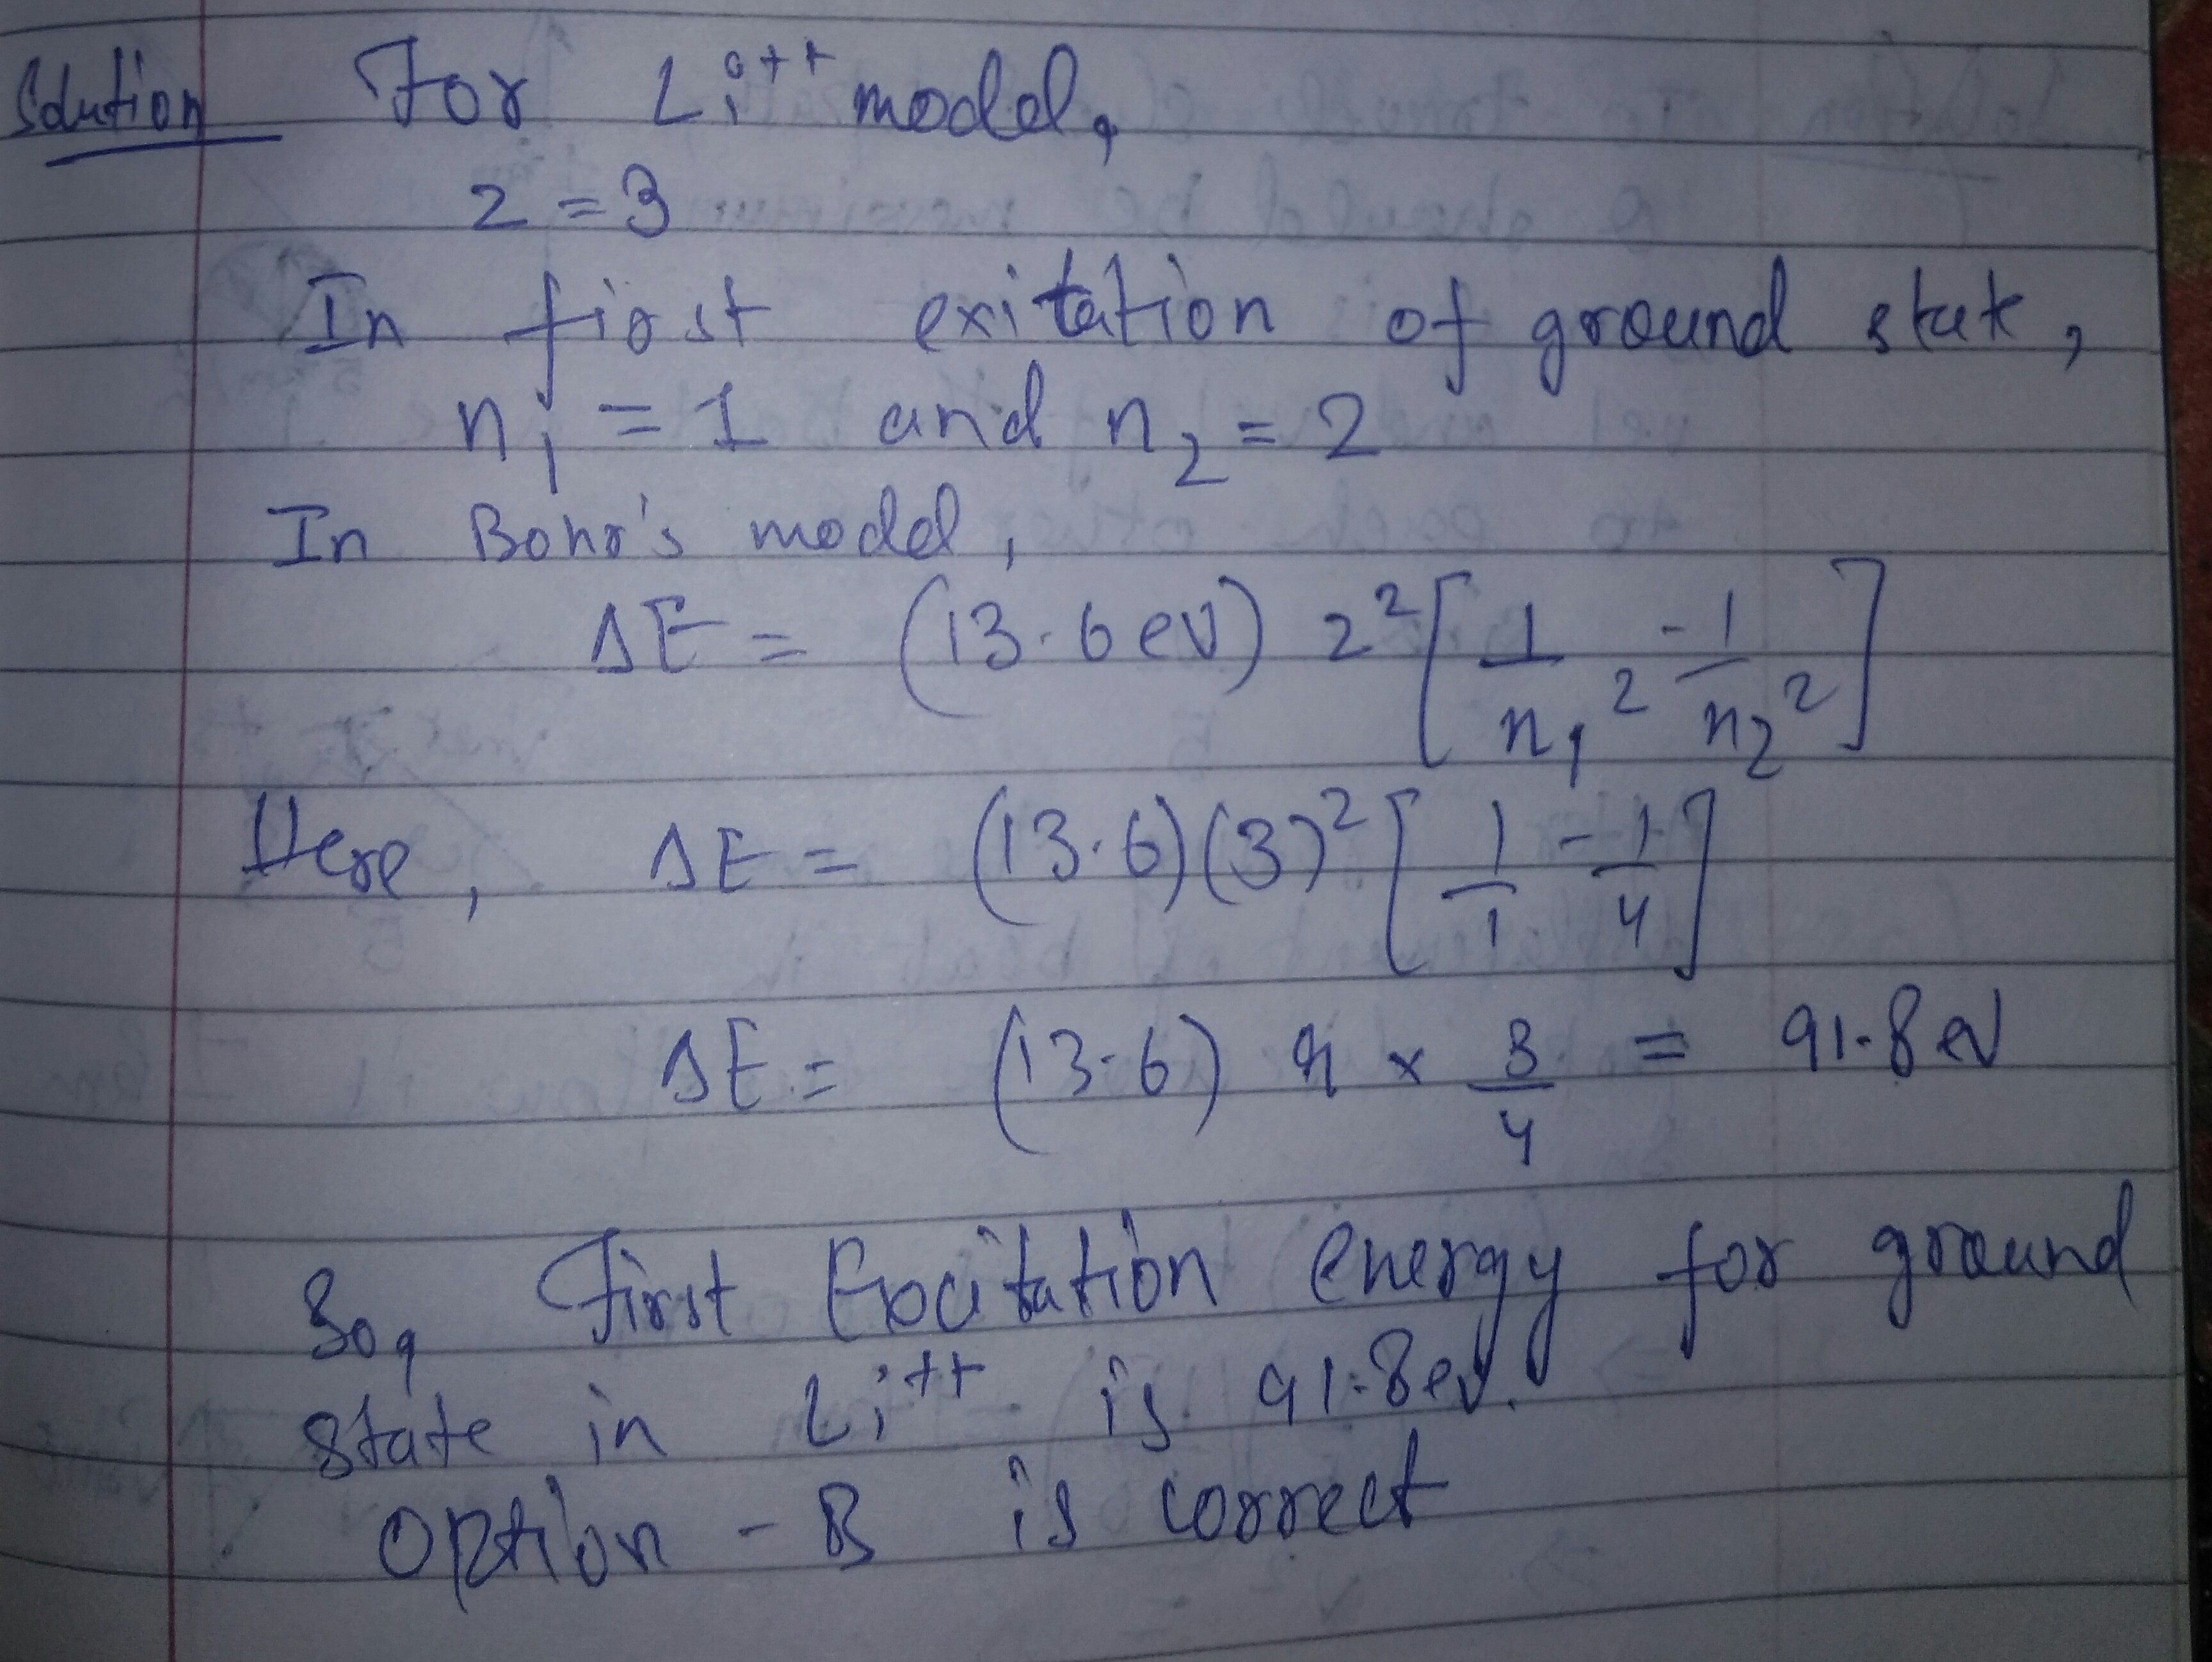 Solution For Li++ model,
z = 3
In first exitation of ground state,
n₁ = 1 and n₂ = 2
In Bohr's model,
ΔE = (13.6 eV) z² [1/n₁² - 1/n₂²]
Here, ΔE = (13.6)(3)² [1/1 - 1/4]
ΔE = (13.6) 9 × 3/4 = 91.8 eV
So, First Excitation energy for ground
state in Li++ is 91.8 eV.
option - B is correct